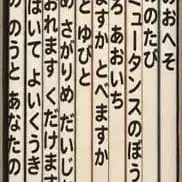 おおへそ
のたび
ュータンスのぼう
ろ あおいち
ますか とべますか
と ゆびと
め さがりめ だいじ
おれます くだけます
はいて よいくうき
の のうと あなたの